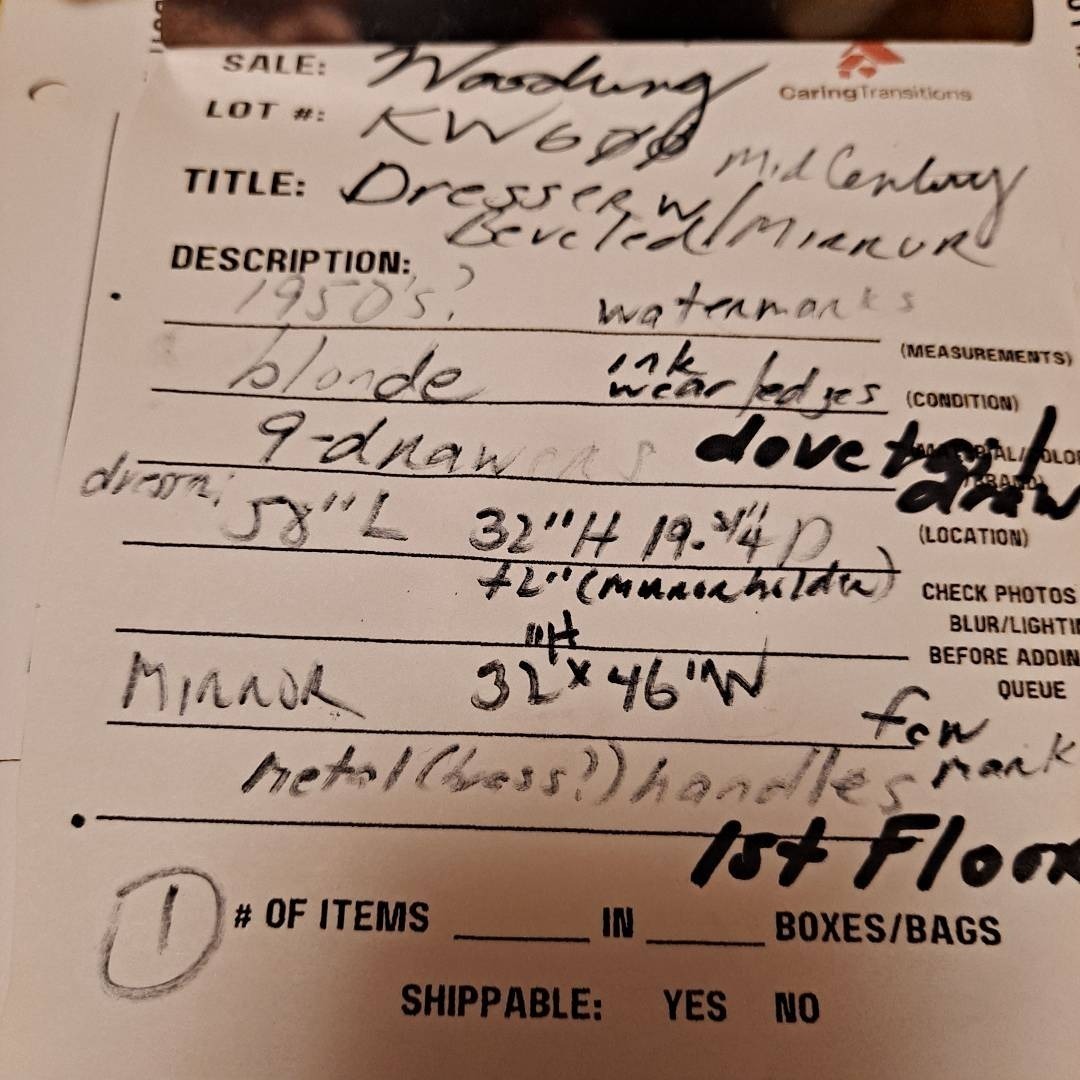 SALE:
CaringTransitions
LOT #: KW600
Mid Century
TITLE: Dresser w/
Beveled Mirror
DESCRIPTION:
1950's? watermarks
(MEASUREMENTS)
blonde ink
wear/edges (CONDITION)
9-drawers dovetail
draw
dresser; 58"L 32"H 19.3/4" D (LOCATION)
+2" (mirror holder) CHECK PHOTOS
BLUR/LIGHTI
BEFORE ADDIN
QUEUE
MIRROR 32"H x 46"W
few
metal (brass?) handles mark
1st Floor
1 # OF ITEMS IN BOXES/BAGS
SHIPPABLE: YES NO